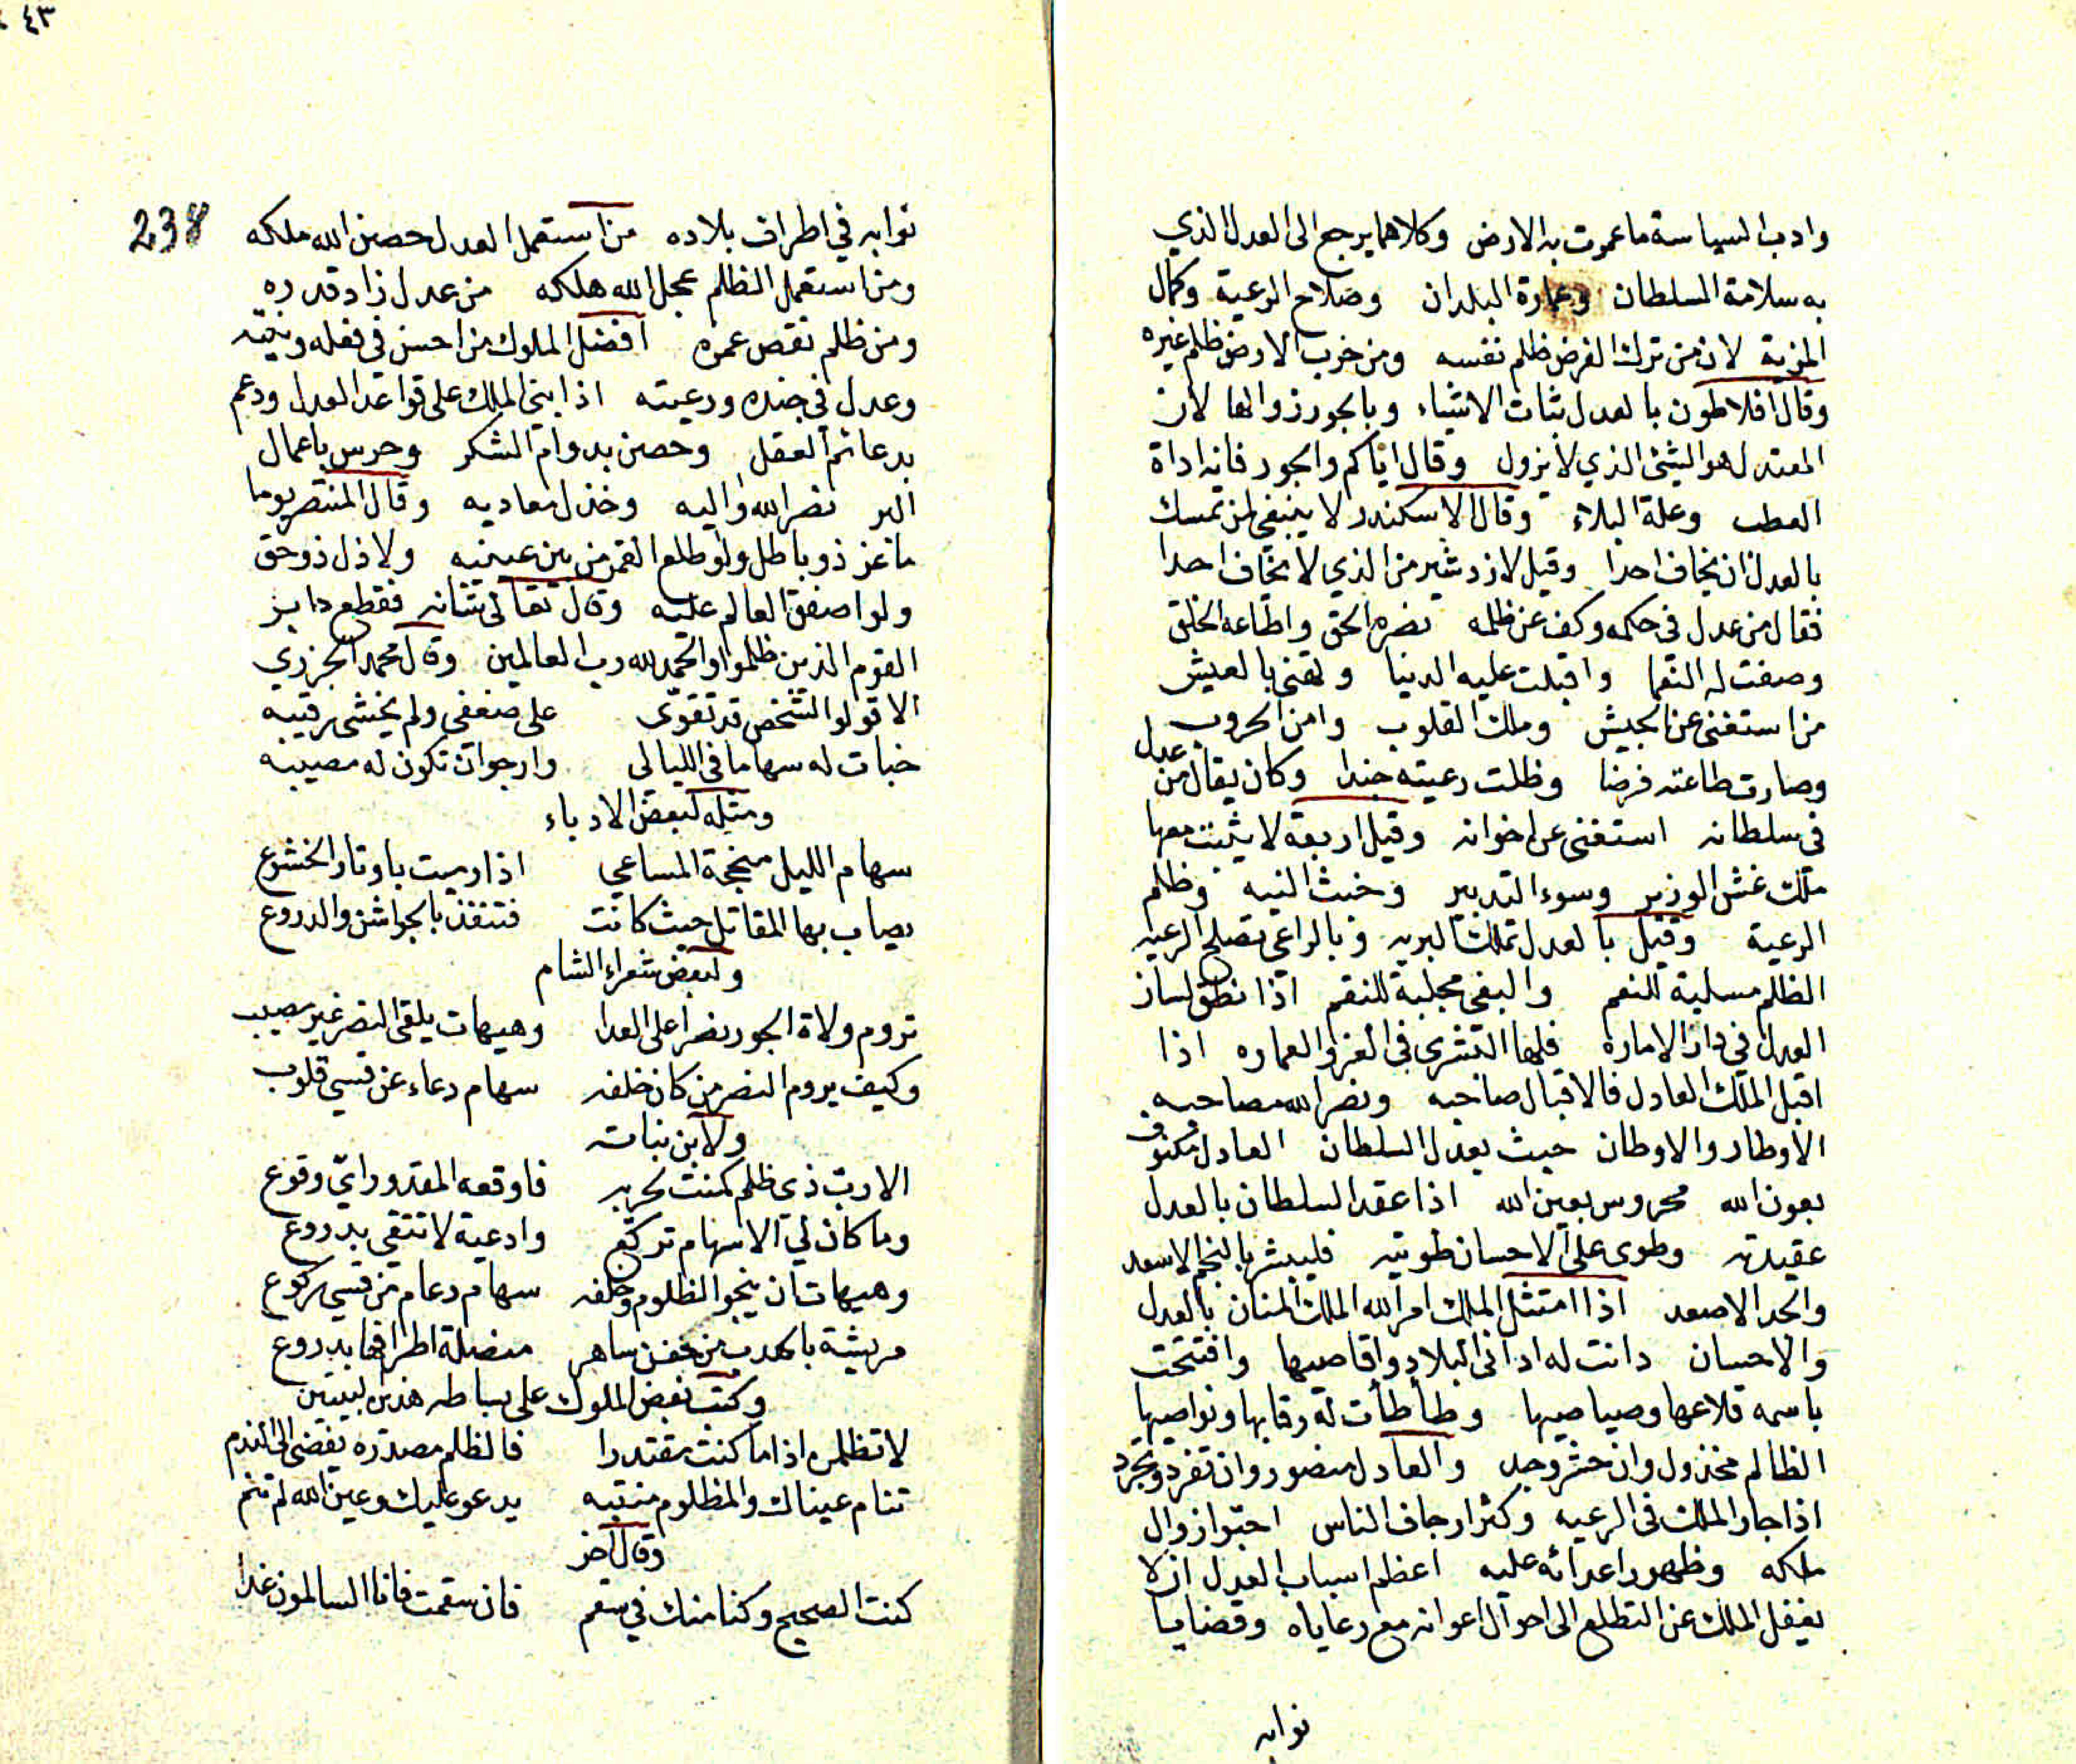 وادب السياسة ما عمرت به الارض وكلاهما يرجع الى العدل الذي
به سلامة السلطان وعمارة البلدان وصلاح الرعية وكمال
المزية لان من ترك الفرض ظلم نفسه ومن خرب الارض ظلم غيره
وقال افلاطون بالعدل ثبات الاشياء وبالجور زوالها لان
المعتدل هو الشئ الذي لا يزول وقال اياكم والجور فانه اداة
العطب وعلة البلاء وقال الاسكندر لا ينبغي لمن تمسك
بالعدل ان يخاف احدا وقيل لازدشير من الذي لا يخاف احدا
فقال من عدل في حكمه وكف عن ظلمه نصره الحق واطاعه الخلق
وصفت له النعما واقبلت عليه الدنيا وتهنى بالعيش
من استغنى عن الجيش وملك القلوب وامن الحروب
وصارت طاعته فرضا وظلت رعيته جندا وكان يقال من عدل
في سلطانه استغنى عن اخوانه وقيل اربعة لا يثبت معها
ملك غش الوزير وسوء التدبير وخبث النيه وظلم
الرعية وقيل بالعدل تملك البريه وبالراعي تصلح الرعيه
الظلم مسلبة للنعم والبغي مجلبة للنقم اذا نطق لسان
العدل في دار الامارة فلها البشرى في العز والعماره اذا
اقبل الملك العادل فالاقبال صاحبه ونصر الله مصاحبه
الاوطار والاوطان حيث يعدل السلطان العادل مكنوف
بعون الله محروس بعين الله اذا عقد السلطان بالعدل
عقيدته وطوى على الاحسان طويته فليبشر بالنجم الاسعد
والجد الاصعد اذا امتثل الملك امر الله الملك المنان بالعدل
والاحسان دانت له اداني البلاد واقاصيها وافتتحت
باسمه قلاعها وصياصيها وطأطأت له رقابها ونواصيها
الظالم مخذول وان حشر وجد والعادل منصور وان تفرد وتجرد
اذا جار الملك في الرعيه وكثر ارجاف الناس احبوا زوال
ملكه وظهور اعدائه عليه اعظم اسباب العدل ان لا
يغفل الملك عن التطلع الى احوال اعوانه مع رعاياه وقضايا
نوابه
٤٣
238
نوابه في اطراف بلاده من استعمل العدل حصن الله ملكه
ومن استعمل الظلم عجل الله هلكه من عدل زاد قدره
ومن ظلم نقص عمره افضل الملوك من احسن في فعله ونيته
وعدل في جنده ورعيته اذا بنى الملك على قواعد العدل ودعم
بدعائم العقل وحصن بدوام الشكر وحرس باعمال
البر نصر الله واليه وخذل معاديه وقال المنتصر يوما
ما عز ذو باطل ولو طلع القمر من بين عينيه ولا ذل ذو حق
ولو اصفق العالم عليه وقال تعالى شانه فقطع دابر
القوم الذين ظلموا والحمد لله رب العالمين وقال محمد الجزري
الا قولوا لشخص قد تقوى على ضعفي ولم يخشى رقيبه
خبات له سهاما في الليالي وارجو ان تكون له مصيبه
ومثله لبعض الادباء
سهام الليل منجحة المساعي اذا رميت باوتار الخشوع
يصاب بها المقاتل حيث كانت فتنفذ بالجواشن والدروع
ولبعض شعراء الشام
تروم ولاة الجور نصرا على العدا وهيهات يلقى النصر غير مصيب
وكيف يروم النصر من كان خلفه سهام دعاء عن قسي قلوب
ولابن نباته
الا رب ذي ظلم كمنت لحربه فاوقعه المقدور اي وقوع
وما كان لي الا سهام تركع وادعية لا تتقى بدروع
وهيهات ان ينجو الظلوم وخلفه سهام دعاء من قسي ركوع
مريشة بالهدب من جفن ساهر منصلة اطرافها بدروع
وكتب بعض الملوك على بساطه هذين البيتين
لا تظلمن اذا ما كنت مقتدرا فالظلم مصدره يفضى الى الندم
تنام عيناك والمظلوم منتبه يدعو عليك وعين الله لم تنم
وقال آخر
كنت الصحيح وكنا منك في سقم فان سقمت فانا السالمون غدا